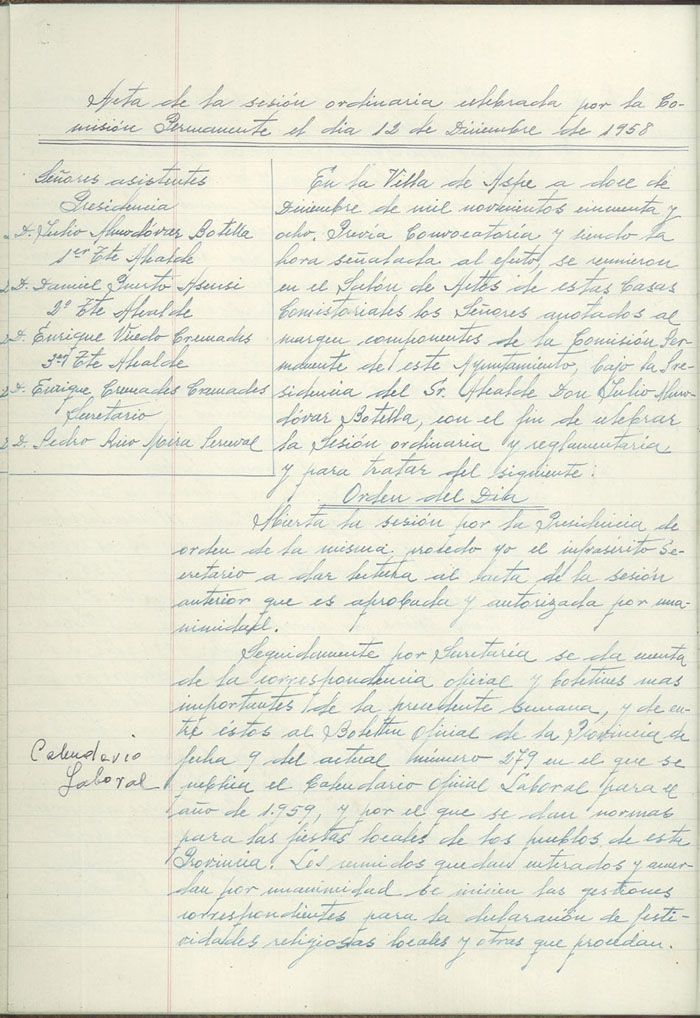 Acta de la sesión ordinaria celebrada por la Co-
misión Permanente el dia 12 de Diciembre de 1958
Señores asistentes
Presidencia
D. Julio Almodóvar Botella
1er Tte Alcalde
D. Daniel Puerto Asensi
2º Tte Alcalde
D. Enrique Cremades
3er Tte Alcalde
D. Enrique Cremades Cremades
Secretario
D. Pedro Rico Mira
En la Villa de Aspe a doce de
Diciembre de mil novecientos cincuenta y
ocho. Previa Convocatoria y siendo la
hora señalada al efecto, se reunieron
en el Salón de Actos de estas Casas
Consistoriales los Señores anotados al
margen componentes de la Comisión Per-
manente de este Ayuntamiento, bajo la Pre-
sidencia del Sr. Alcalde Don Julio Almo-
dóvar Botella, con el fin de celebrar
la Sesión ordinaria y reglamentaria
y para tratar del siguiente:
Orden del Dia
Abierta la sesión por la Presidencia de
orden de la misma procedo yo el infrascrito Se-
cretario a dar lectura al acta de la sesión
anterior que es aprobada y autorizada por una-
nimidad.
Seguidamente por Secretaría se da cuenta
de la correspondencia oficial y boletines mas
importantes de la precedente semana, y de en-
tre éstos al Boletín Oficial de la Provincia de
fecha 9 del actual número 279 en el que se
publica el Calendario Oficial Laboral para el
año de 1.959, y por el que se dan normas
para las fiestas locales de los pueblos de esta
Provincia. Los reunidos quedan enterados y acuer-
dan por unanimidad se inicien las gestiones
correspondientes para la declaración de festi-
vidades religiosas locales y otras que procedan.
Calendario
Laboral